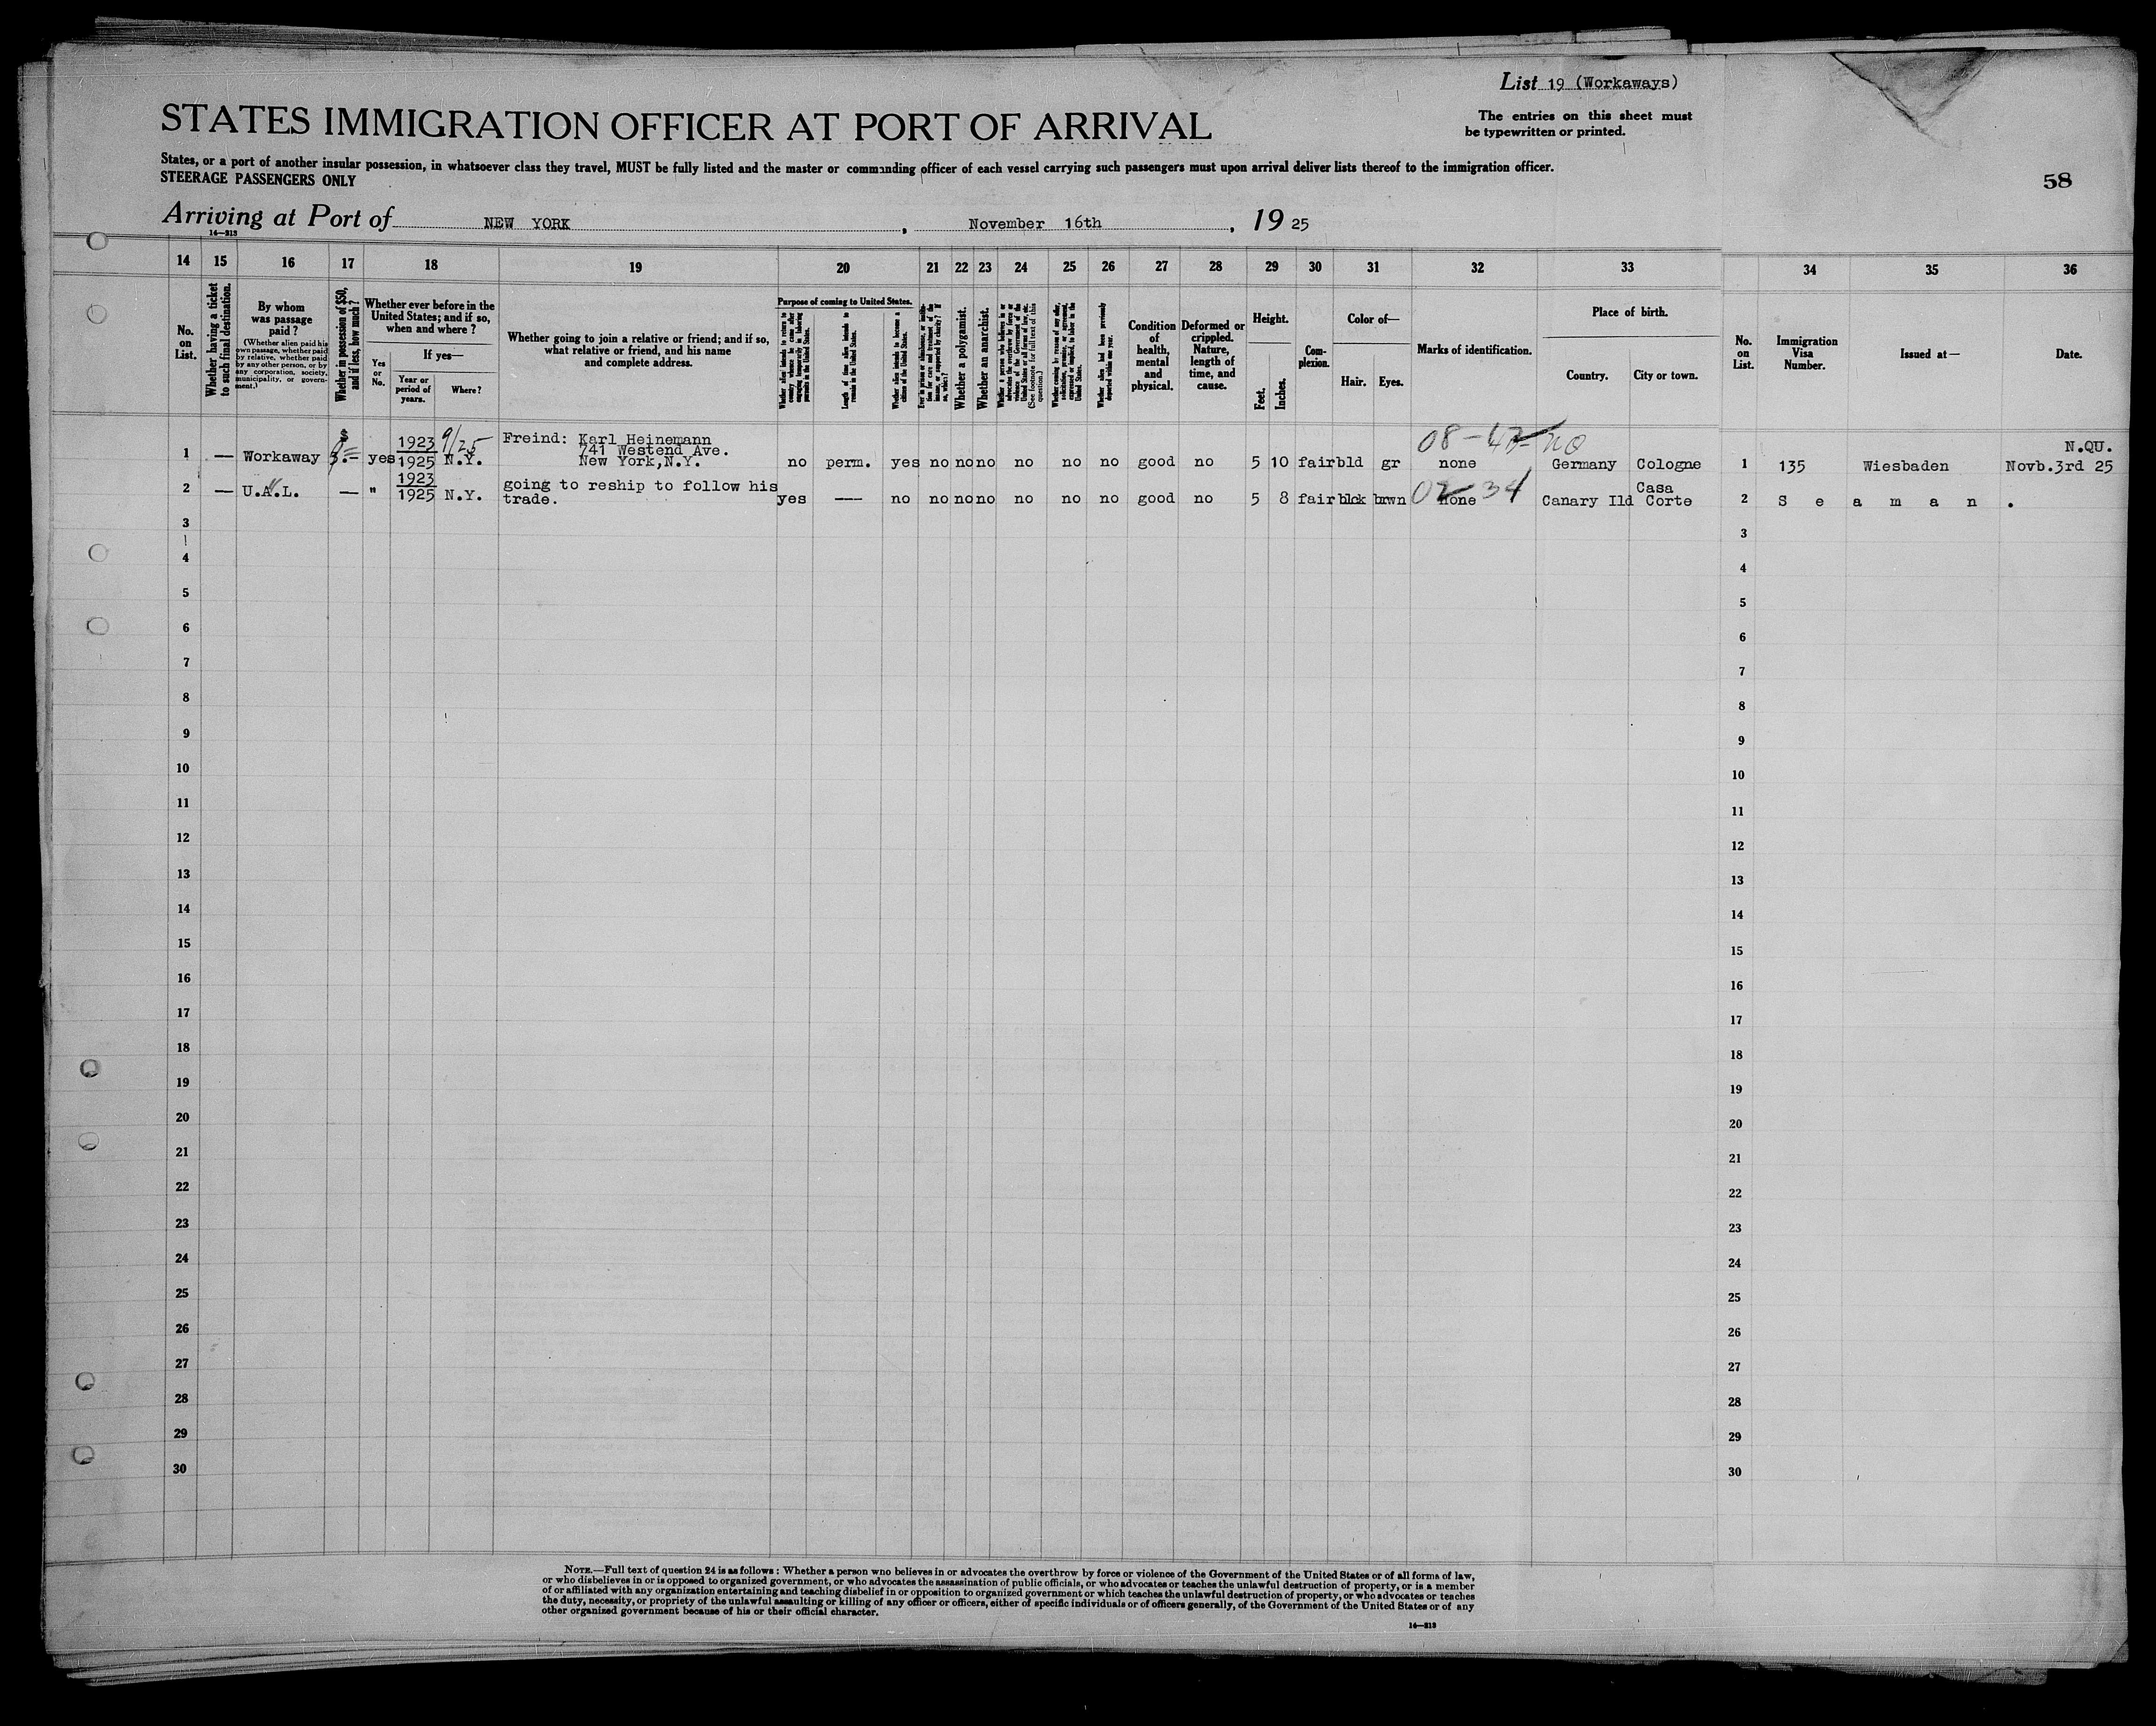 List 19 (Workaways)
STATES IMMIGRATION OFFICER AT PORT OF ARRIVAL
The entries on this sheet must
be typewritten or printed.
States, or a port of another insular possession, in whatsoever class they travel, MUST be fully listed and the master or commanding officer of each vessel carrying such passengers must upon arrival deliver lists thereof to the immigration officer.
STEERAGE PASSENGERS ONLY
58
Arriving at Port of NEW YORK, November 16th, 19 25
14—213
14 15 16 17 18 19 20 21 22 23 24 25 26 27 28 29 30 31 32 33 34 35 36
No. on List.
Whether having a ticket to such final destination.
By whom was passage paid?
(Whether alien paid his own passage, whether paid by relative, whether paid by any other person, or by any corporation, society, municipality, or government.)
Whether in possession of $50, and if less, how much?
Whether ever before in the United States; and if so, when and where?
Yes or No.
If yes—
Year or period of years.
Where?
Whether going to join a relative or friend; and if so, what relative or friend, and his name and complete address.
Purpose of coming to United States.
Whether alien intends to return to country whence he came after engaging temporarily in laboring pursuits in the United States.
Length of time alien intends to remain in the United States.
Whether alien intends to become a citizen of the United States.
Ever in prison or almshouse, or institution for care and treatment of the insane, or supported by charity? If so, which?
Whether a polygamist.
Whether an anarchist.
Whether a person who believes in or advocates the overthrow by force or violence of the Government of the United States or all forms of law, etc. (See footnote for full text of this question.)
Whether coming by reason of any offer, solicitation, promise, or agreement, expressed or implied, to labor in the United States.
Whether alien had been previously deported within one year.
Condition of health, mental and physical.
Deformed or crippled. Nature, length of time, and cause.
Height.
Feet.
Inches.
Complexion.
Color of—
Hair.
Eyes.
Marks of identification.
Place of birth.
Country.
City or town.
No. on List.
Immigration Visa Number.
Issued at—
Date.
1 — Workaway $ yes 1923 1925 9/25 N.Y. Freind: Karl Heinemann
741 Westend Ave.
New York, N.Y. no perm. yes no no no no no no good no 5 10 fair bld gr none Germany Cologne 1 135 Wiesbaden N.QU. Novb.3rd 25
2 — U.A.L. — " 1923 1925 N.Y. going to reship to follow his
trade. yes --- no no no no no no no good no 5 8 fair blck brwn 02 34 none Canary Ild Casa Corte 2 S e a m a n .
3 3
4 4
5 5
6 6
7 7
8 8
9 9
10 10
11 11
12 12
13 13
14 14
15 15
16 16
17 17
18 18
19 19
20 20
21 21
22 22
23 23
24 24
25 25
26 26
27 27
28 28
29 29
30 30
NOTE.—Full text of question 24 is as follows: Whether a person who believes in or advocates the overthrow by force or violence of the Government of the United States or of all forms of law,
or who disbelieves in or is opposed to organized government, or who advocates the assassination of public officials, or who advocates or teaches the unlawful destruction of property, or is a member
of or affiliated with any organization entertaining and teaching disbelief in or opposition to organized government or which teaches the unlawful destruction of property, or who advocates or teaches
the duty, necessity, or propriety of the unlawful assaulting or killing of any officer or officers, either of specific individuals or of officers generally, of the Government of the United States or of any
other organized government because of his or their official character.
14—213